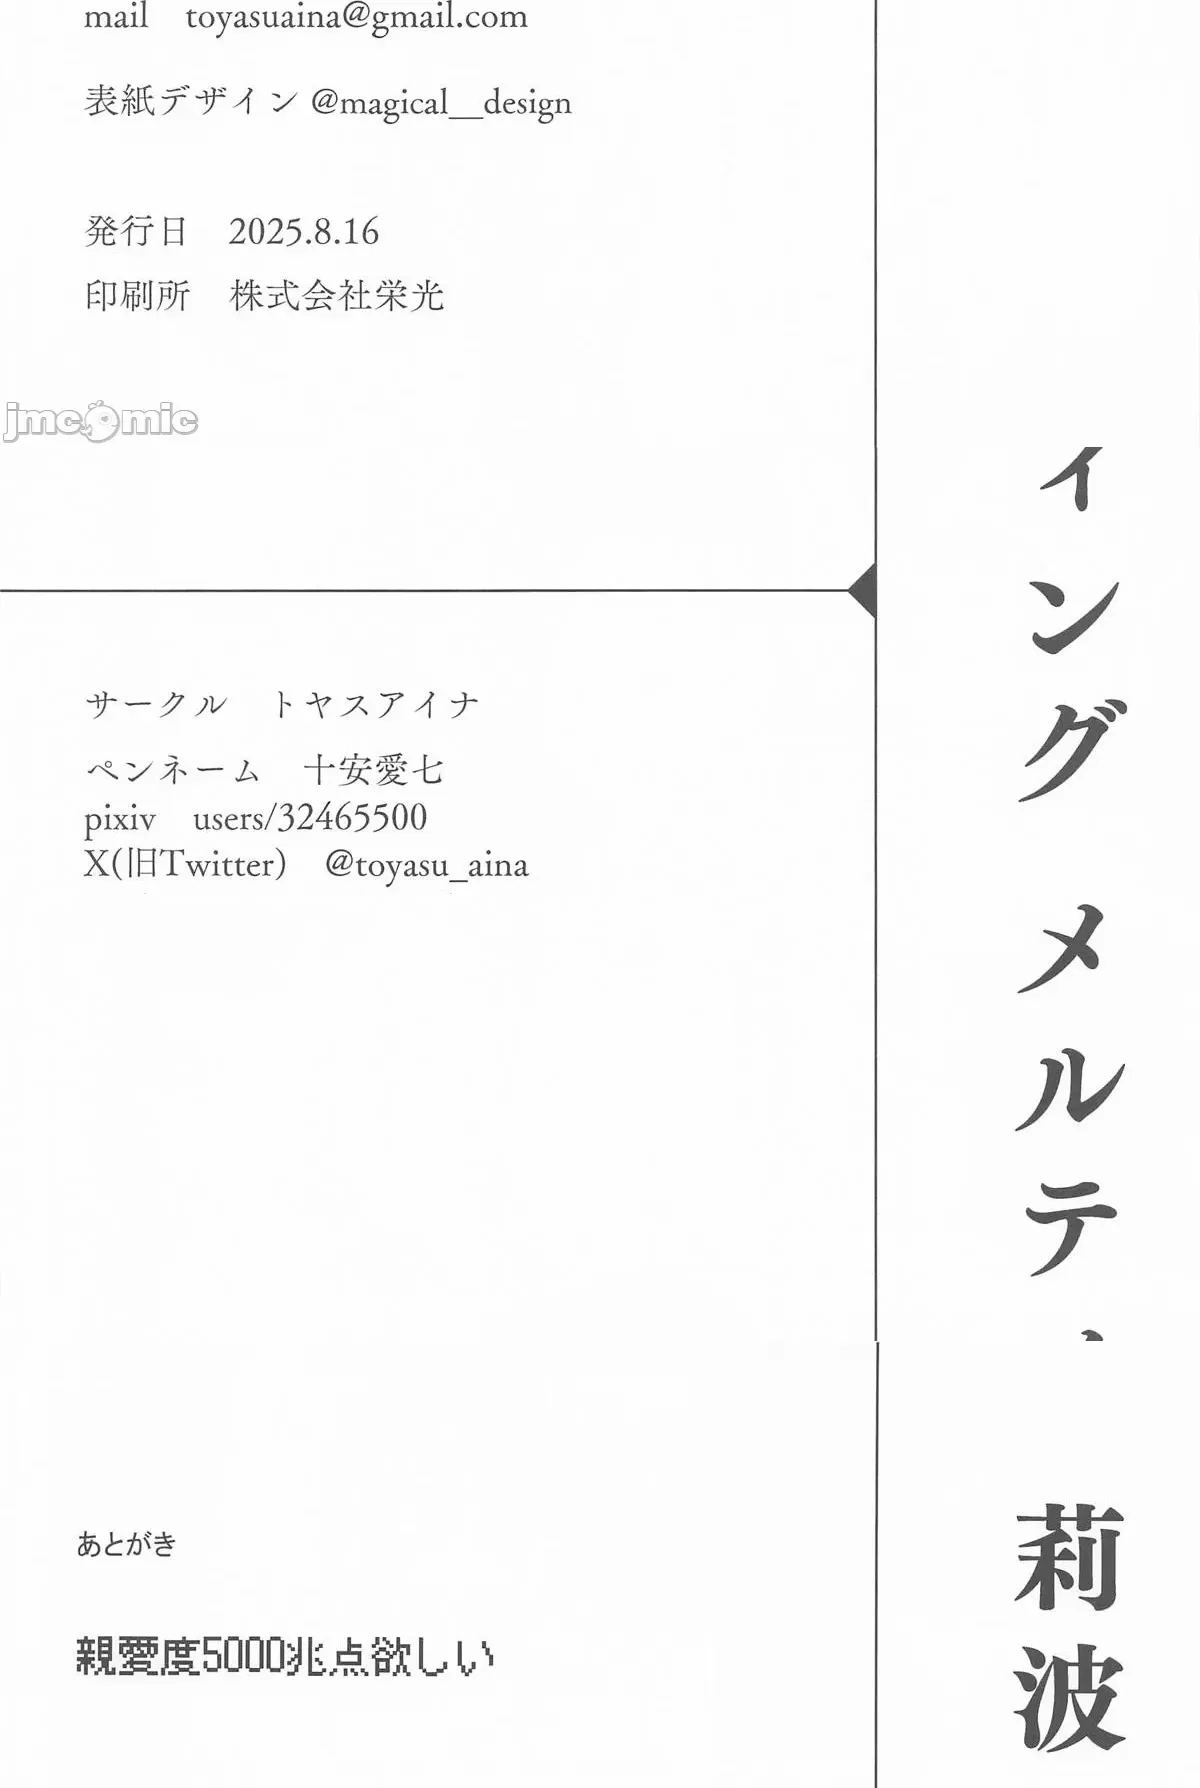 mail　toyasuaina@gmail.com
表紙デザイン @magical__design
発行日　2025.8.16
印刷所　株式会社栄光
jmcomic
サークル　トヤスアイナ
ペンネーム　十安愛七
pixiv　users/32465500
X(旧Twitter)　@toyasu_aina
あとがき
親愛度5000兆点欲しい
ィング メルテ
莉波